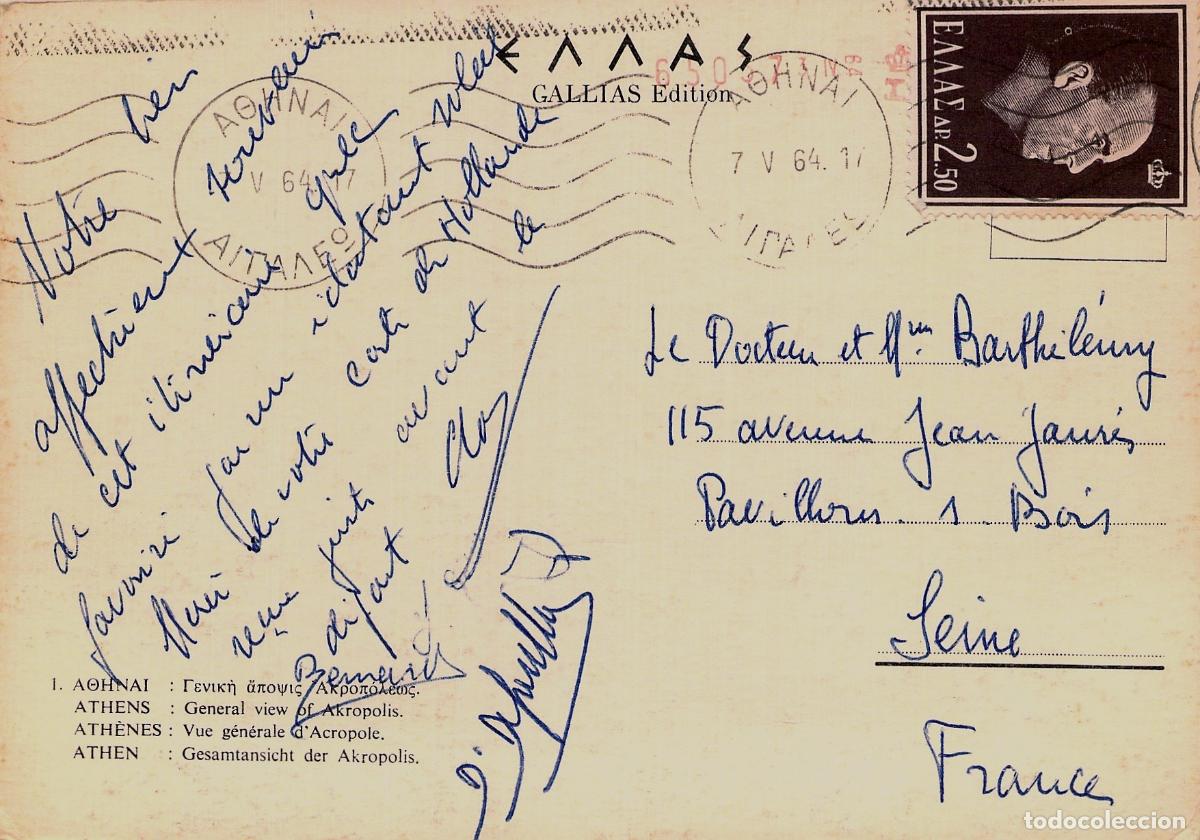 ΕΛΛΑΣ
GALLIAS Edition
ΑΘΗΝΑΙ
V 64. 17
ΑΙΓΑΛΕΩ
ΑΘΗΝΑΙ
7 V 64. 17
ΑΙΓΑΛΕΩ
ΕΛΛΑΣ ΔΡ. 2.50
Notre bien
affectueux souvenir
de cet itinéraire grec
favorisé par un éclatant soleil
Merci de votre carte de Hollande
reçue juste avant le
départ
Bernard
Le Docteur et Mme Barthélémy
115 avenue Jean Jaurès
Pavillons. s. Bois
Seine
France
1. ΑΘΗΝΑΙ : Γενικὴ ἄποψις Ἀκροπόλεως.
ATHENS : General view of Akropolis.
ATHÈNES : Vue générale d'Acropole.
ATHEN : Gesamtansicht der Akropolis.
todocoleccion